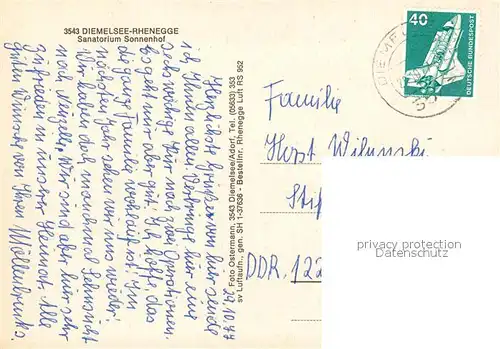 3543 DIEMELSEE-RHENEGGE
Sanatorium Sonnenhof
29.10.77
Herzlichste Grüße von hier sende
ich Ihnen allen. Verbringe hier eine
sechswöchige Kur nach zwei Operationen.
Es geht mir aber gut. Ich hoffe, das
die ganze Familie wohlauf ist! Im
nächsten Jahr sehen wir uns wieder!
Wir haben doch manchmal Sehnsucht
nach Wir sind aber hier sehr
zufrieden in unserer Heimat. Alle
guten Wünsche von Ihren
Foto Ostermann, 3543 Diemelsee/Adorf, Tel. (05633) 353
sv Luftaufn., gen. SH 1-37636 - Bestellnr. Rhenegge Luft RS 952
40
DEUTSCHE BUNDESPOST
Familie
Horst
DDR. 122
privacy protection
Datenschutz